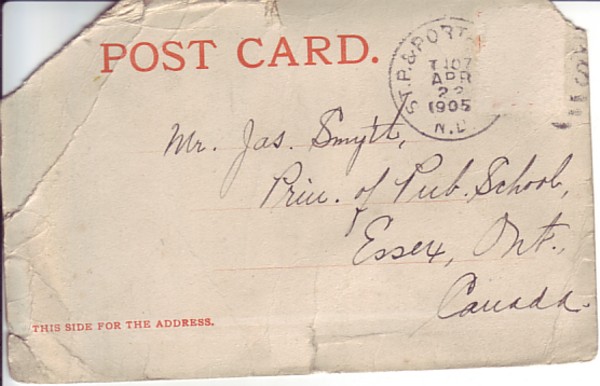 POST CARD.
ST. P. & PORT
T 107
APR
22
1905
N.D
Mr. Jas. Smyth,
Prin. of Pub. School,
Essex, Ont.,
Canada.
THIS SIDE FOR THE ADDRESS.